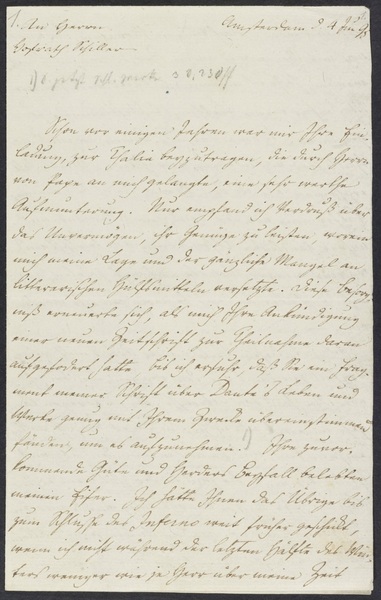 An Herrn Amsterdam d 4 Jun 95
Hofrath Schiller
Schon vor einigen Jahren war mir Ihre Ein-
ladung, zur Thalia beyzutragen, die durch Herrn
von Pape an mich gelangte, eine sehr werthe
Aufmunterung. Nur empfand ich Verdruß über
das Unvermögen, ihr Genüge zu leisten, worein
mich meine Lage und der gänzliche Mangel an
litterarischen Hülfsmitteln versetzte. Diese
erneuerte sich, als mich Ihre Ankündigung
einer neuen Zeitschrift zur Theilnahme daran
aufgefordert hatte bis ich erfuhr, daß Sie ein Frag-
ment meiner Schrift über Dante's Leben und
Werke genug mit Ihrem Zwecke übereinstimmend
fänden, um es aufzunehmen. Ihre zuvor-
kommende Güte und Herders Beyfall belebten
meinen Eifer. Ich hätte Ihnen das Übrige bis
zum Schlusse des Inferno weit früher geschickt,
wenn ich nicht während der letzten Hälfte des Win-
ters weniger wie je Herr über meine Zeit